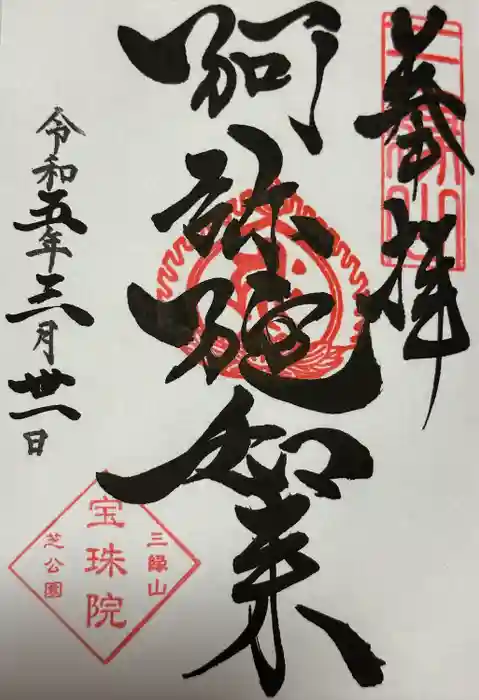 奉拝
三縁山
阿弥陀如来
令和五年三月丗一日
三縁山
宝珠院
芝公園